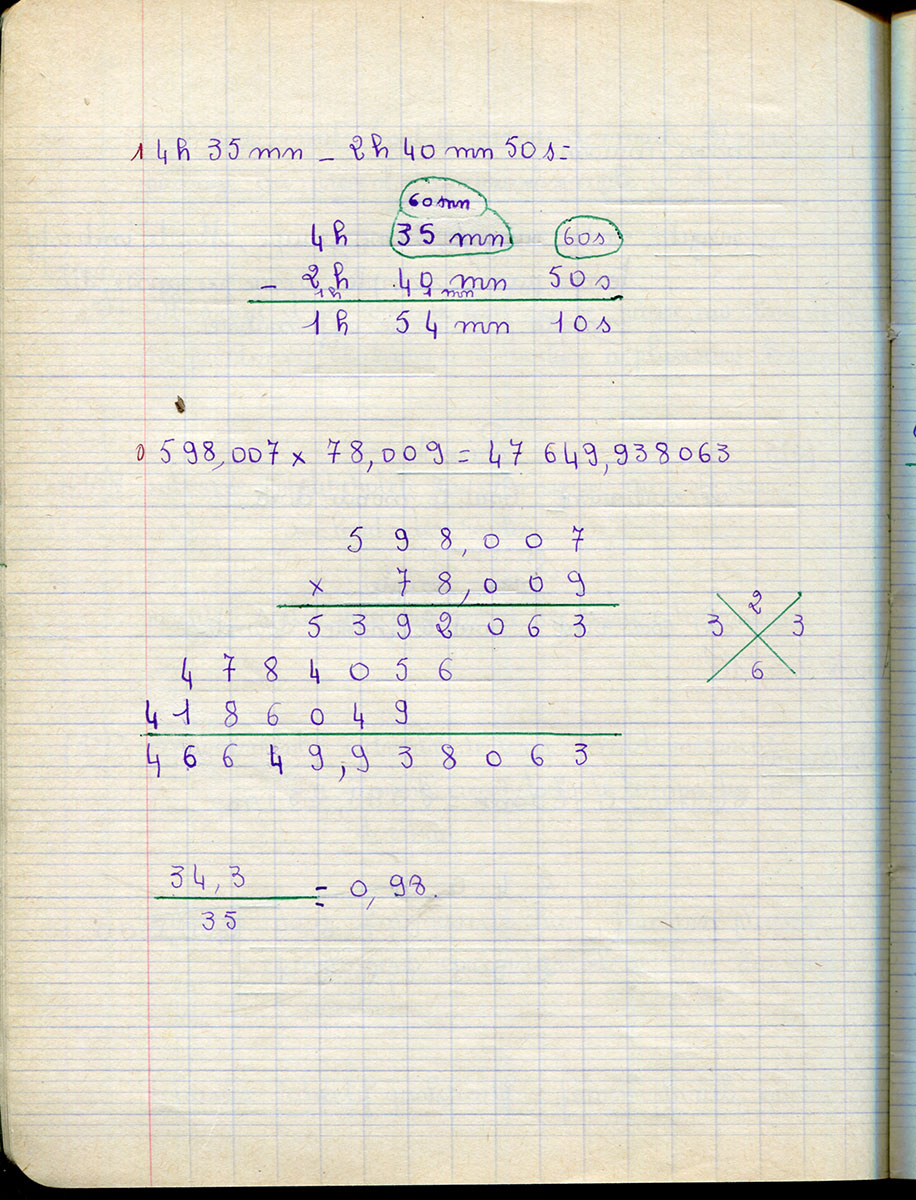 1 4h 35 mn - 2h 40 mn 50 s =
60 mn
4h 35 mn 60s
- 2h 40 mn 50 s
1h 1 mn
1h 54 mn 10 s
0 598,007 x 78,009 = 47 649,938063
5 9 8, 0 0 7
x 7 8, 0 0 9
5 3 9 2 0 6 3
4 7 8 4 0 5 6
4 1 8 6 0 4 9
4 6 6 4 9, 9 3 8 0 6 3
2
3 3
6
34,3
= 0,98.
35